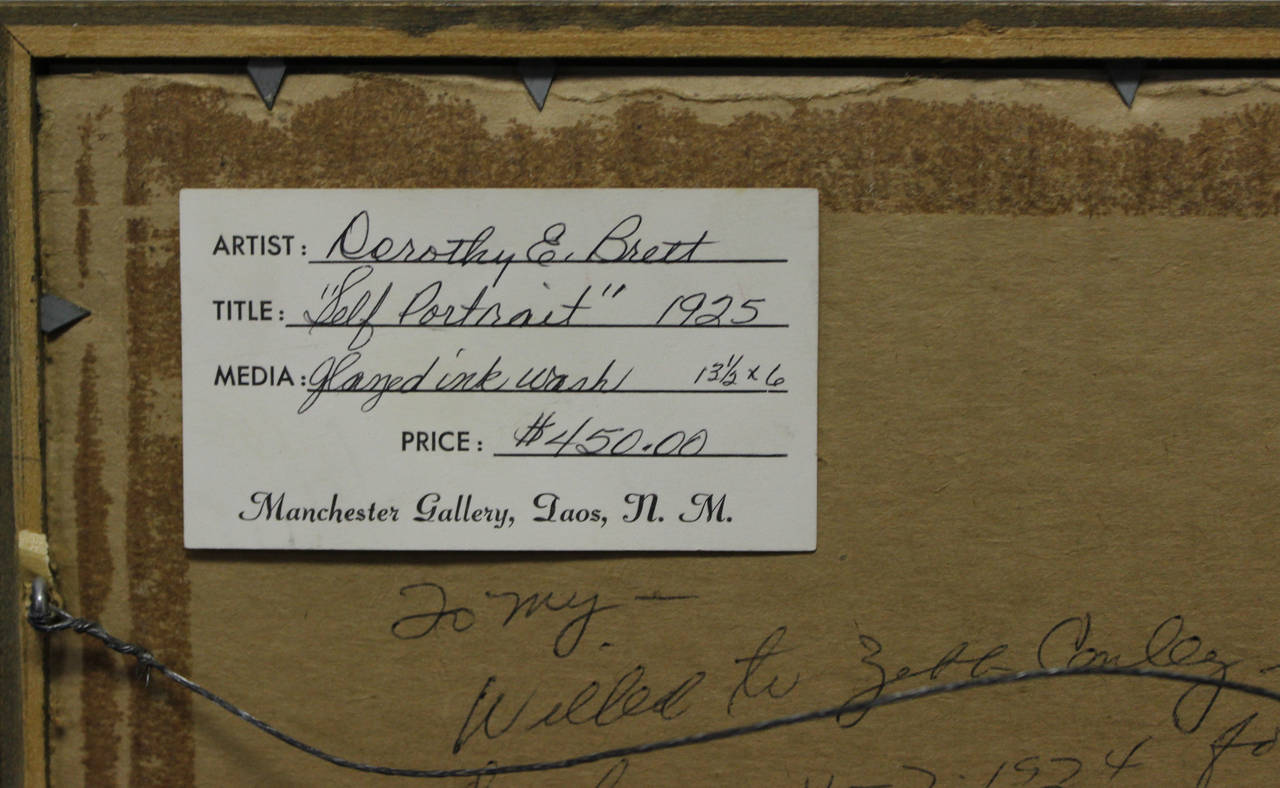 ARTIST: Dorothy E. Brett
TITLE: "Self Portrait" 1925
MEDIA: glazed ink wash 13½ x 6
PRICE: $450.00
Manchester Gallery, Taos, N. M.
To my —
Willed to Zebb Conley -
7. 1974 for